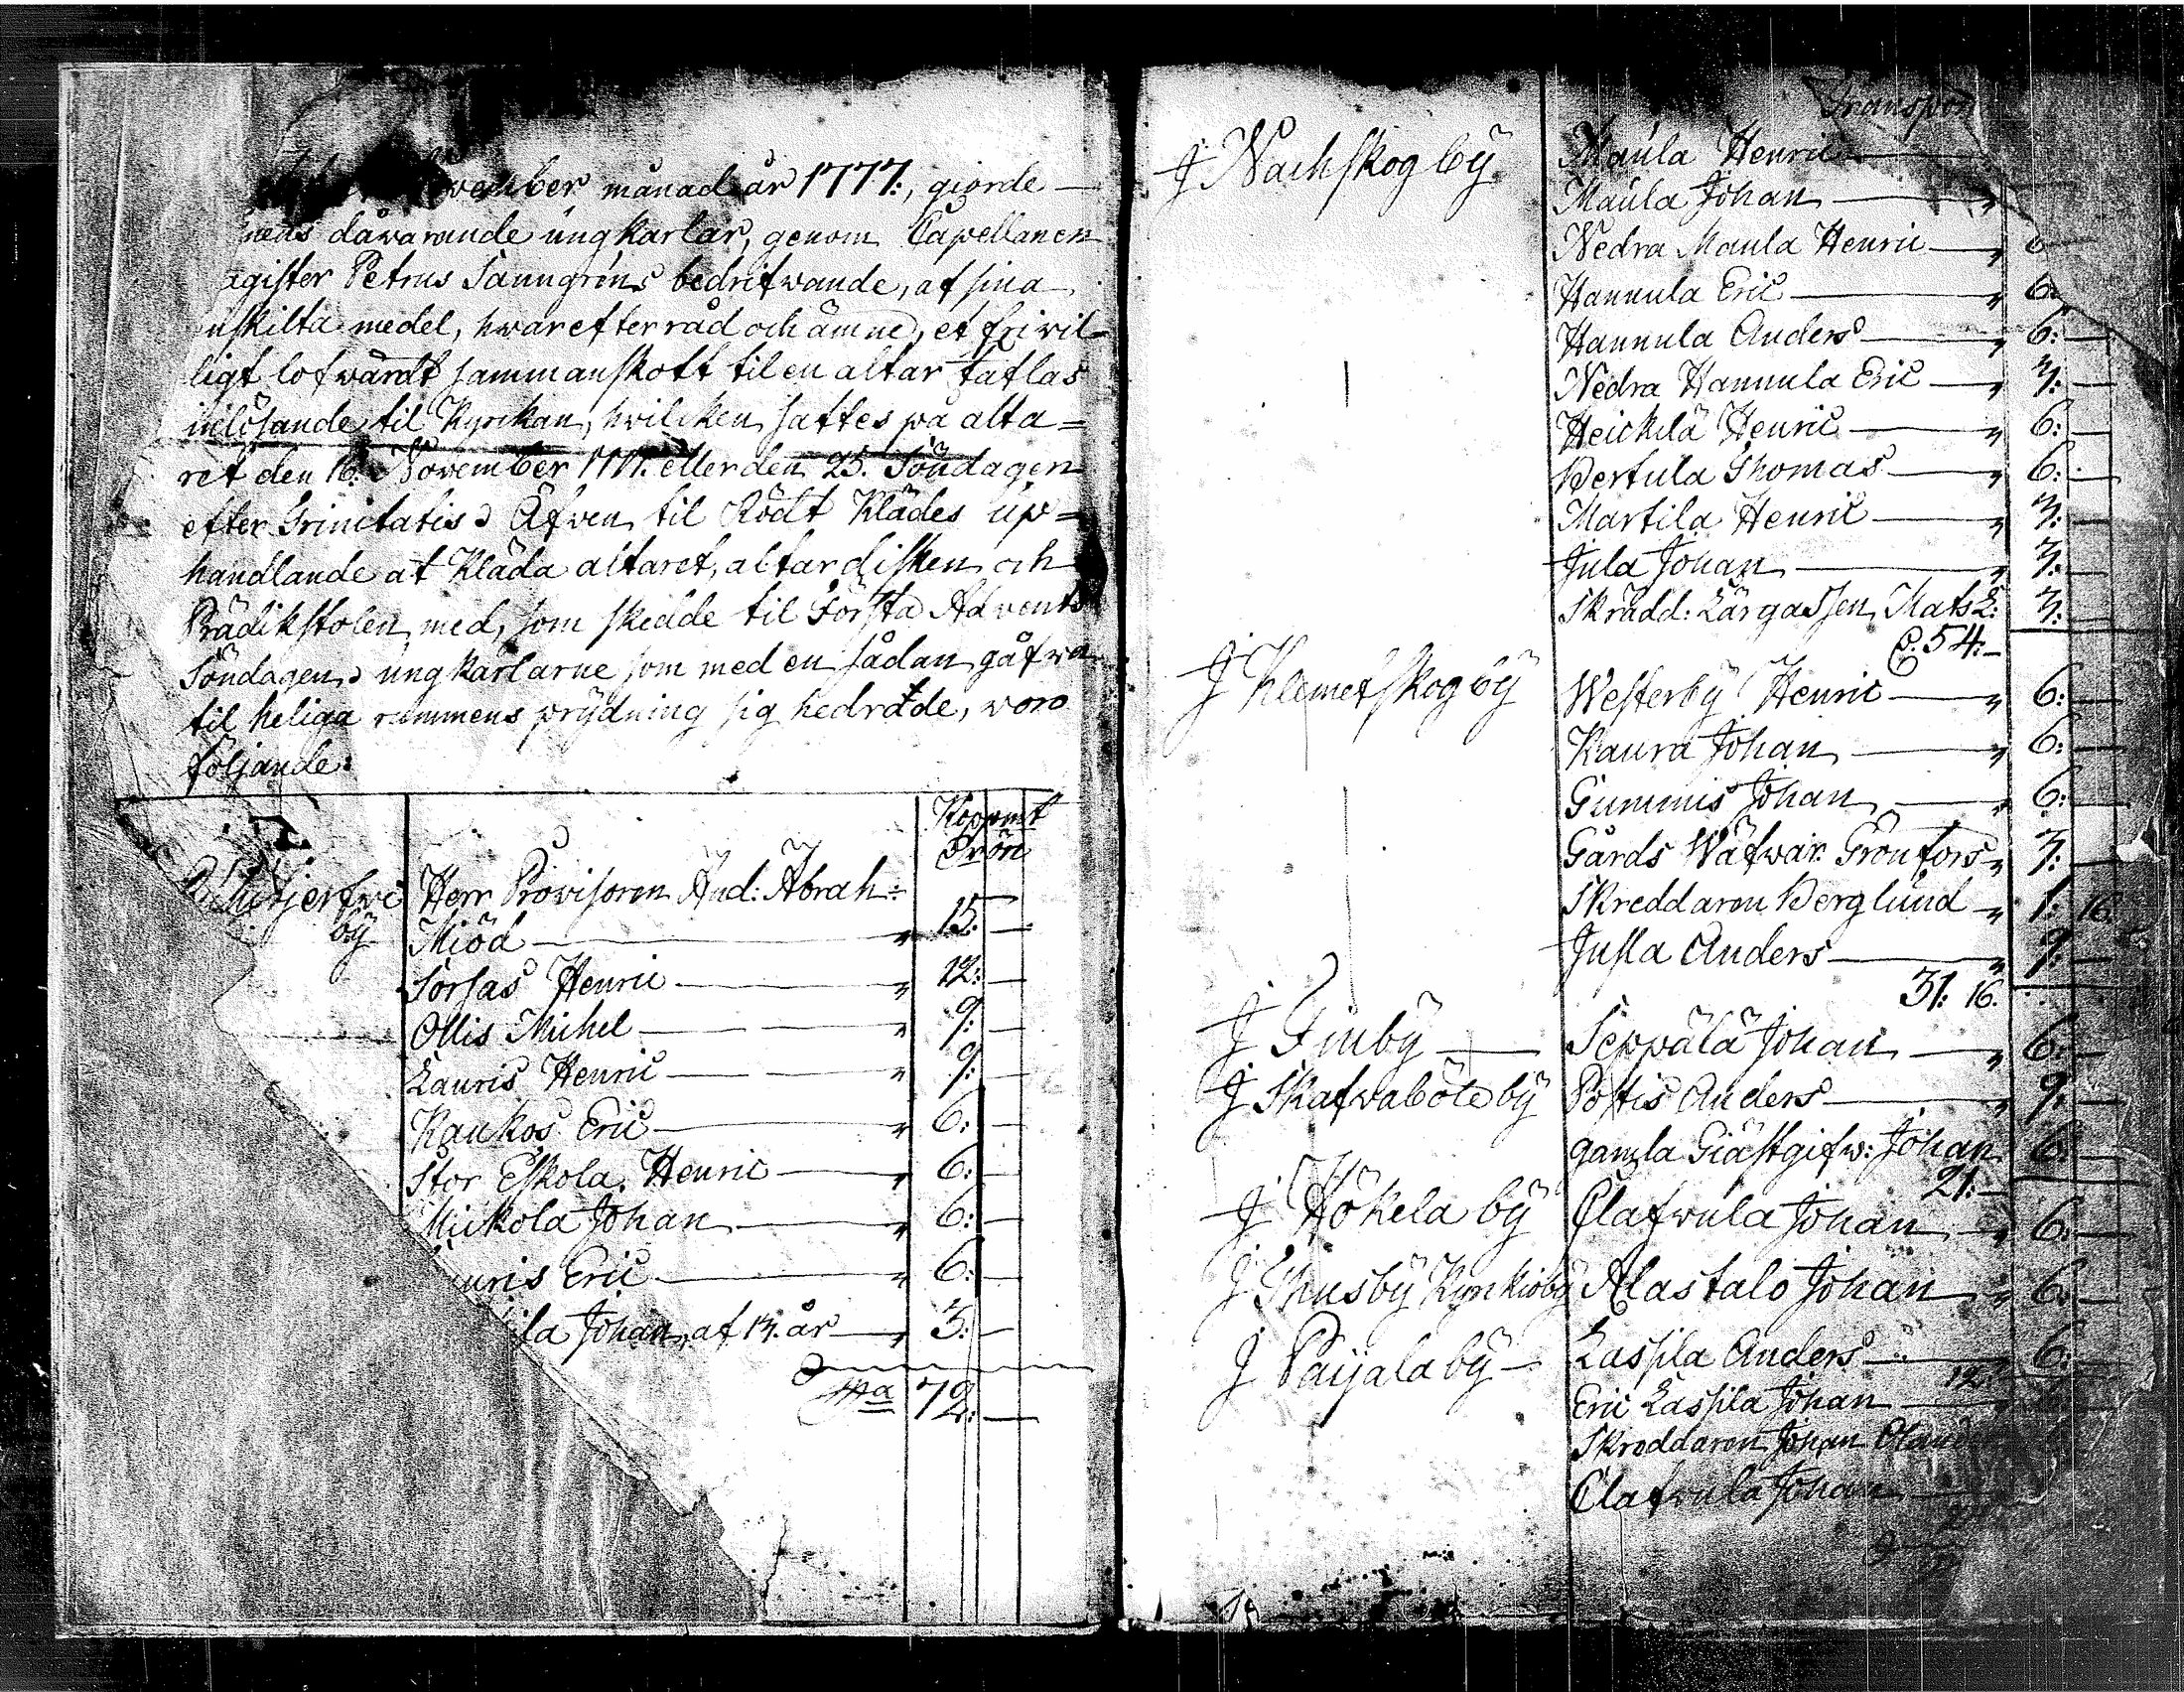 vember månad år 1777:, giorde
dåvarande ungkarlar, genom Capellanen
agister Petrus Sanngréns bedrifwande, af sina
nskilta medel, hwar efter råd och ämne, et friwil=
ligt lofwärdt sammanskott til en altar taflas
inlösande til Kyrckan, hvilcken sattes på alta=
ret den 16. November 1777. eller den 25. Söndagen
efter Trinitatis. Äfven til Rödt Klädes up=
handlande at Kläda altaret, altardisken och
Prädikstolen med, som skedde til Första Advents
Söndagen. ungkarlarne som med en sådan gåfva
til heliga rummens prydning sig hedrade, voro
följande.
Koppmt
jerfwi Herr Provisoren And: Abrah:
by Miöd — 15: —
Sorsas Henric — 12: —
Ollis Michel — 9: —
Lauris Henric — 9: —
Kaukos Eric — 6: —
Stor Eskola Henric — 6: —
Mickola Johan — 6: —
uris Eric — 6: —
la Johan, af 14. år — 3: —
Sma 72: —
Transport
J Nachskog by Maula Henric —
Maula Johan —
Nedra Maula Henric — 6
Hannula Eric — 6:
Hannula Anders — 6: —
Nedra Hannula Eric — 3: —
Heickilä Henric — 6: —
Bertula Thomas — 6: —
Martila Henric — 3: —
Jula Johan — 3: —
Skrädd: Lärgassen Mats L: 3: —
54: —
J Klemetskog by Westerby Henric — 6: —
Kaura Johan — 6: —
Gummis Johan — 6: —
Gårds Wäfwar: Grönfors 3: —
Skreddaren Berglund 1: 16.
Jusla Anders — 9: —
31: 16.
J Finby — Seppälä Johan — 6: —
J Skafvaböle by Postis Anders — 9: —
gamla Giästgifw: Johan 6: —
21: —
J Hökela by Olafvula Johan — 6: —
J Husby Kyrkioby Alastalo Johan — 6: —
J Paijala by — Lassila Anders — 6: —
12:
Eric Lassila Johan —
Skreddaren Johan
Olafvula Johan —